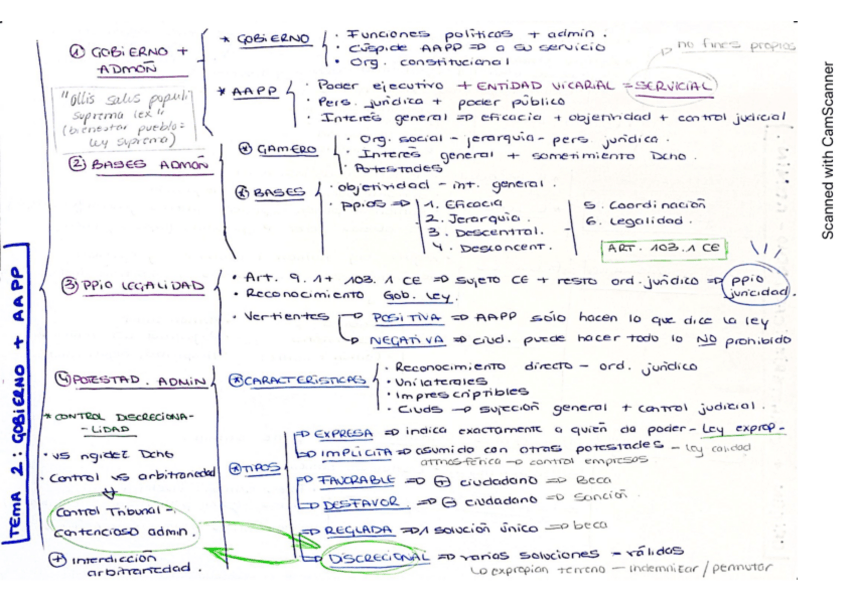 TEMA 2: GOBIERNO + AAPP
① GOBIERNO + ADMOÑ
* GOBIERNO
· Funciones políticas + admin.
· Cúspide AAPP => a su servicio
· Org. constitucional
no fines propios
* AAPP
· Poder ejecutivo + ENTIDAD VICARIAL = SERVICIAL
· Pers. jurídica + poder público
· Interés general => eficacia + objetividad + control judicial
"Ollis salus populi
suprema lex"
(bienestar pueblo =
ley suprema)
② BASES ADMOÑ
GAMERO
· Org. social - jerarquía - pers. jurídica.
· Interés general + sometimiento Dcho.
· Potestades
BASES
· objetividad - int. general.
· ppios =>
1. Eficacia
2. Jerarquía.
3. Descentral.
4. Desconcent.
5. Coordinación
6. Legalidad.
ART. 103.1 CE
③ PPIO LEGALIDAD
· Art. 9.1 + 103.1 CE => sujeto CE + resto ord. jurídico => ppio juricidad.
· Reconocimiento Gob. Ley.
· Vertientes
POSITIVA => AAPP sólo hacen lo que dice la ley
NEGATIVA => ciud. puede hacer todo lo NO prohibido
④ POTESTAD. ADMIN
* CONTROL DISCRECIONA-
-LIDAD
· vs rigidez Dcho
· Control vs arbitrariedad
Control Tribunal -
Contencioso admin.
⊕ Interdicción
arbitrariedad.
CARACTERÍSTICAS
· Reconocimiento directo - ord. jurídico
· Unilaterales
· Imprescriptibles
· Ciuds -> sujeción general + control judicial.
TIPOS
=> EXPRESA => indica exactamente a quién da poder - Ley exprop-
=> IMPLÍCITA => asumido con otras potestades - ley calidad
atmosférica -> control empresas
=> FAVORABLE => ⊕ ciudadano => Beca
=> DESFAVOR. => ⊖ ciudadano => Sanción.
=> REGLADA => 1 solución único => beca
=> DISCRECIONAL => varias soluciones - válidas
Lo expropian terreno - indemnizar / permutar
Scanned with CamScanner